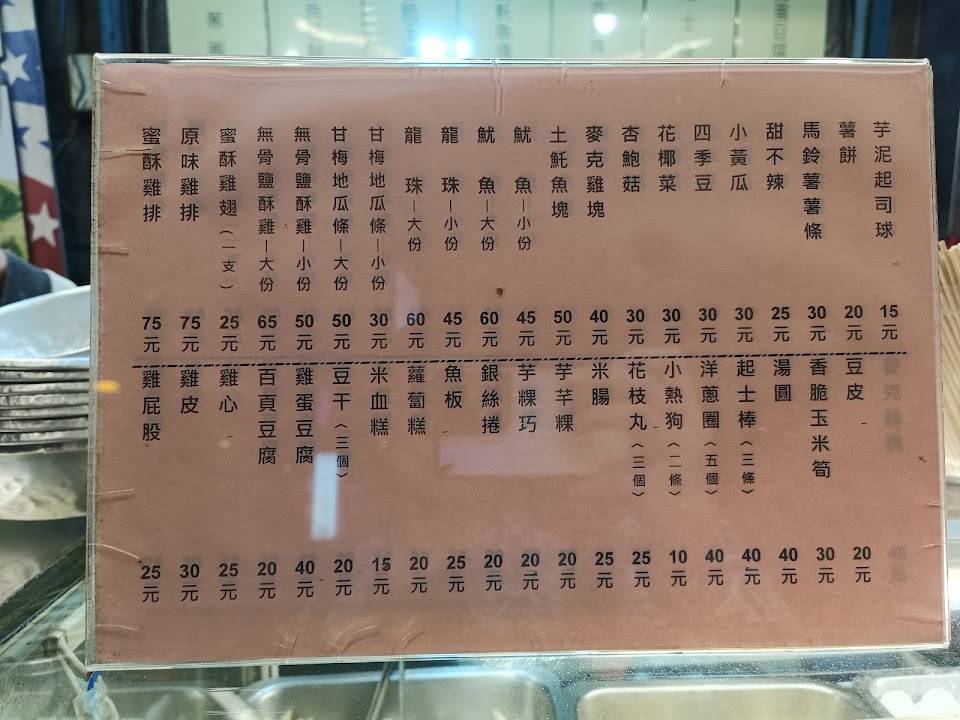 芋泥起司球 15元
薯餅 20元
馬鈴薯薯條 30元
甜不辣 25元
小黃瓜 30元
四季豆 30元
花椰菜 30元
杏鮑菇 30元
麥克雞塊 40元
土魠魚塊 50元
魷魚—小份 45元
魷魚—大份 60元
龍珠—小份 45元
龍珠—大份 60元
甘梅地瓜條—小份 30元
甘梅地瓜條—大份 50元
無骨鹽酥雞—小份 50元
無骨鹽酥雞—大份 65元
蜜酥雞翅(一支) 25元
原味雞排 75元
蜜酥雞排 75元
豆皮 20元
香脆玉米筍 30元
湯圓 40元
起士棒〈三條〉 40元
洋蔥圈〈五個〉 40元
小熱狗〈二條〉 10元
花枝丸〈三個〉 25元
米腸 25元
芋芋粿 20元
芋粿巧 20元
銀絲捲 20元
魚板 25元
蘿蔔糕 20元
米血糕 15元
豆干〈三個〉 20元
雞蛋豆腐 40元
百頁豆腐 20元
雞心 25元
雞皮 30元
雞屁股 25元